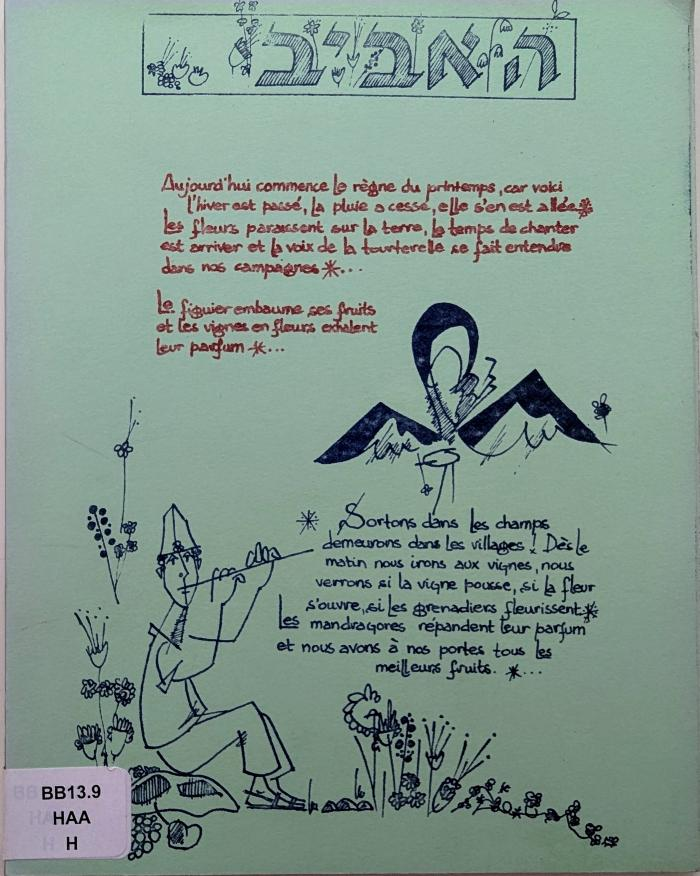 האביב
Aujourd'hui commence le règne du printemps, car voici
l'hiver est passé, la pluie a cessé, elle s'en est allée*
les fleurs paraissent sur la terre, le temps de chanter
est arriver et la voix de la tourterelle se fait entendre
dans nos campagnes *...
Le figuier embaume ses fruits
et les vignes en fleurs exhalent
leur parfum *...
* Sortons dans les champs
demeurons dans les villages ! Dès le
matin nous irons aux vignes, nous
verrons si la vigne pousse, si la fleur
s'ouvre, si les grenadiers fleurissent*
Les mandragores répandent leur parfum
et nous avons à nos portes tous les
meilleurs fruits. *...
BB13.9
HAA
H